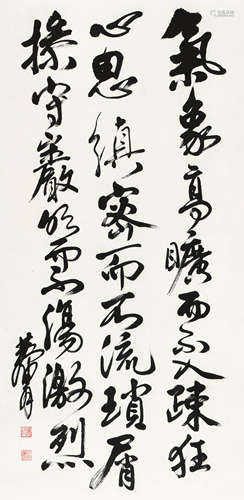 氣象高曠而不入疎狂
心思縝密而不流瑣屑
操守嚴明而不傷激烈